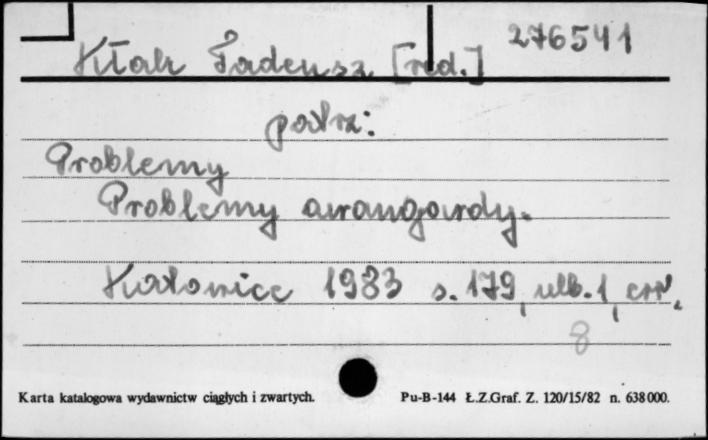 Kłak Tadeusz [red.] 276541
patrz:
Problemy
Problemy awangardy.
Katowice 1983 s. 179, nlb. 1, err.
8
Karta katalogowa wydawnictw ciągłych i zwartych. Pu-B-144 Ł.Z.Graf. Z. 120/15/82 n. 638000.